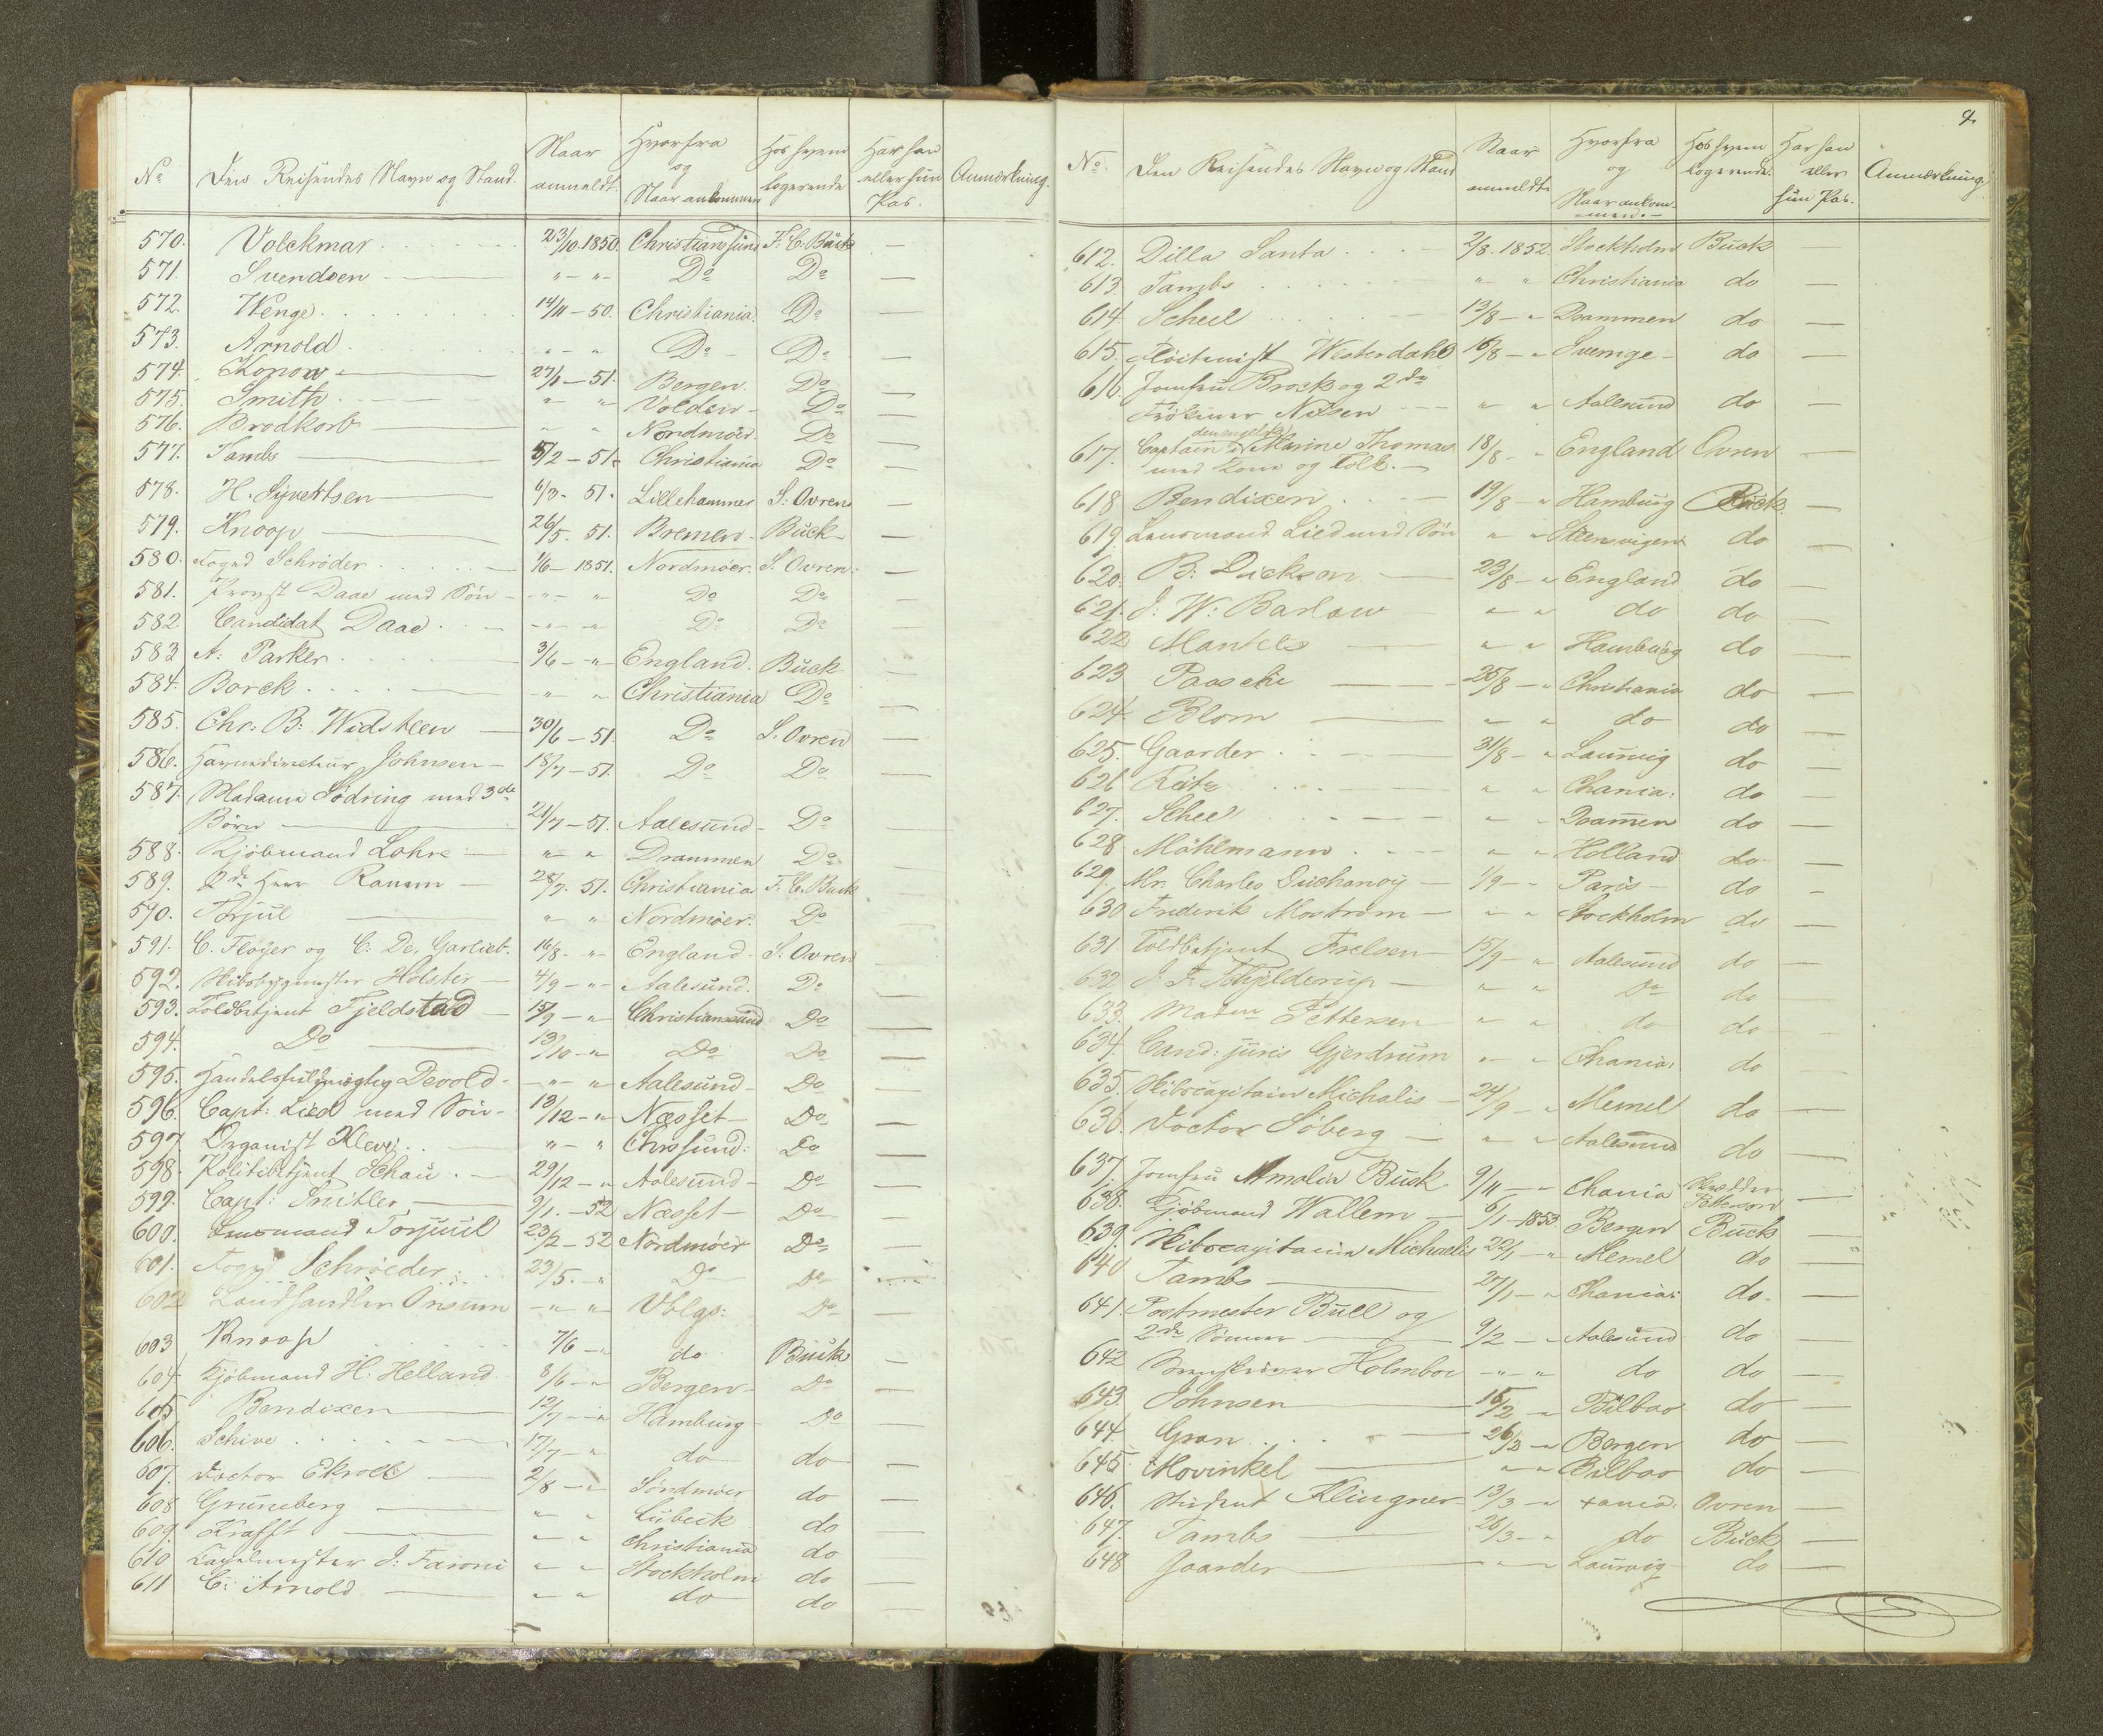 No Den Reisendes Navn og Stand. Naar anmeldt. Hvorfra og Naar ankommen Hos hvem logerende Har han eller hun Pas. Anmærkning.
570. Volckmar 23/10.1850. Christiansund F. C. Buck —
571. Svendsen " — " — Do Do —
572. Wenge 14/11 — 50. Christiania. Do —
573. Arnold " — " Do — Do —
574. Konow 27/1 — 51. Bergen. Do —
575. Smith " " Volden — Do —
576. Brodkorb " " Nordmöer. Do —
577. Tambs 5/2 — 51. Christiania Do —
578. H. Syvertsen 6/3 — 51. Lillehammer S. Ovren —
579. Knoop 26/5. 51. Bremen — Buck —
580. Foged Schrøder 1/6 — 1851. Nordmöer. S. Ovren. —
581. Provst Daae med Sön — " — " Do Do —
582. Candidat Daae — " — " Do Do —
583 A: Parker 3/6 — " England. Buck —
584. Borck — " " Christiania Do —
585. Chr: B: Widsteen 30/6 — 51. Do S. Ovren —
586. Havnedirecteur Johnsen — 18/7 — 51. Do Do —
587. Madame Södring med 3de
Börn 21/7 — 51. Aalesund — Do —
588. Kjöbmand Lohre — " " Drammen Do —
589. 2de Herr Ranem — 28/7. 51. Christiania F. C. Buck —
590. Torjul " " Nordmöer. Do —
591. C. Floyer og C. De. Garlieb. 16/8 — " — England — S. Ovren —
592. Skibsbygmester Holster — 4/9 — " — Aalesund. Do —
593. Toldbetjent Fjeldstad 15/9 — " Christiansund Do —
594. Do 13/10 — " Do Do —
595. Handelsfuldmægtig Devold — — " — " Aalesund — Do —
596. Capt: Lied med Sön — 13/12 — " Næsset — Do —
597 Organist Klevi " — " Chrssund: Do —
598. Politibetjent Schau. — 29/12 — " Aalesund — Do —
599. Capt: Smitler 9/1. — 52 Næsset — Do —
600. Lensmand Torjuul 23/2 — 52 Nordmöer Do —
601. Foged Schröeder 23/5. — " Do Do —
602 Landhandler Onsum — " — " Do —
603 Knoop 7/6 — " do Buck —
604 Kjöbmand H. Helland 8/6 — " Bergen — Do —
605 Bendixen 12/7 — " Hamburg Do —
606. Schive 17/7 — " do do —
607. Doctor Ekroll 2/8 — " Söndmöer do —
608 Gruneberg " " Lübeck do —
609. Krafft " " Christiania do
610 Capelmester J: Faroni " " Stockholm do —
611 C: Arnold " " do do —
4.
No Den Reisendes Navn og Stand Naar anmeldt. Hvorfra og Naar ankommen. — Hos hvem logerende. Har han eller hun Pas. Anmærkning
612. Dilla Santa 2/8. 1852. Stockholm Buck —
613. Tambs " " Christiania do —
614 Scheel 13/8 — " Drammen do —
615. Floitenist Westerdahl 16/8 — " Sverrige — do —
616. Jomfru Brock og 2de
Frökener Nilsen " " Aalesund do —
617. Captain i den engelske Marine Thomas 18/8 — " England Ovren —
med Kone og Tolk. —
618 Bendixen 19/8 — " Hamburg Buck —
619. Lensmand Lied med Sön " " Steensvigen do —
620. B: Dickson 23/8 — " England do —
621. J: W: Barlow " " do do —
622 Mantels " " Hamburg do —
623 Paasche 25/8 — " Christiania do —
624. Blom " " do do —
625. Gaarder 31/8 — " Laurvig do —
626 " " Chania: do —
627. Scheel " " Drammen do —
628 Möhlmann " " Holland do —
629. Mr. Charles Duchanoy — 1/9 — " Paris — do —
630 Frederik Moström — " " Stockholm do —
631 Toldbetjent Frelsen 15/9 — " Aalesund do —
632 J. F. Schjelderup — " " Do do —
633. Madm Pettersen " " do do —
634. Cand: juris Gjerdrum " " Chania: do —
635. Skibscapitain Michalis — 24/9 — " Memel do —
636. Doctor Söberg — " " Aalesund do —
637. Jomfru Amalia Busk 9/11 — " Chania Skrædder Petterson —
638. Kjöbmand Wallem — 6/1 — 1853 Bergen Buck —
639. Skibscapitain Michaelis 22/1 — " Memel do —
640 Tambs 27/1 — " Chania: do. —
641. Postmester Bull og
2de Sönner 9/2 — " Aalesund do —
642 Sorenskriver Holmboe — " — " do do —
643. Johnsen 15/2 — " Bilbao do —
644. Gran 26/2 — " Bergen do —
645 Hovinkel " — " Bilbao do —
646. Student Klingner 13/3 — " Xania. Ovren —
647. Tambs 26/3 — " do Buck —
648 Gaarder — " — " Laurvig do —